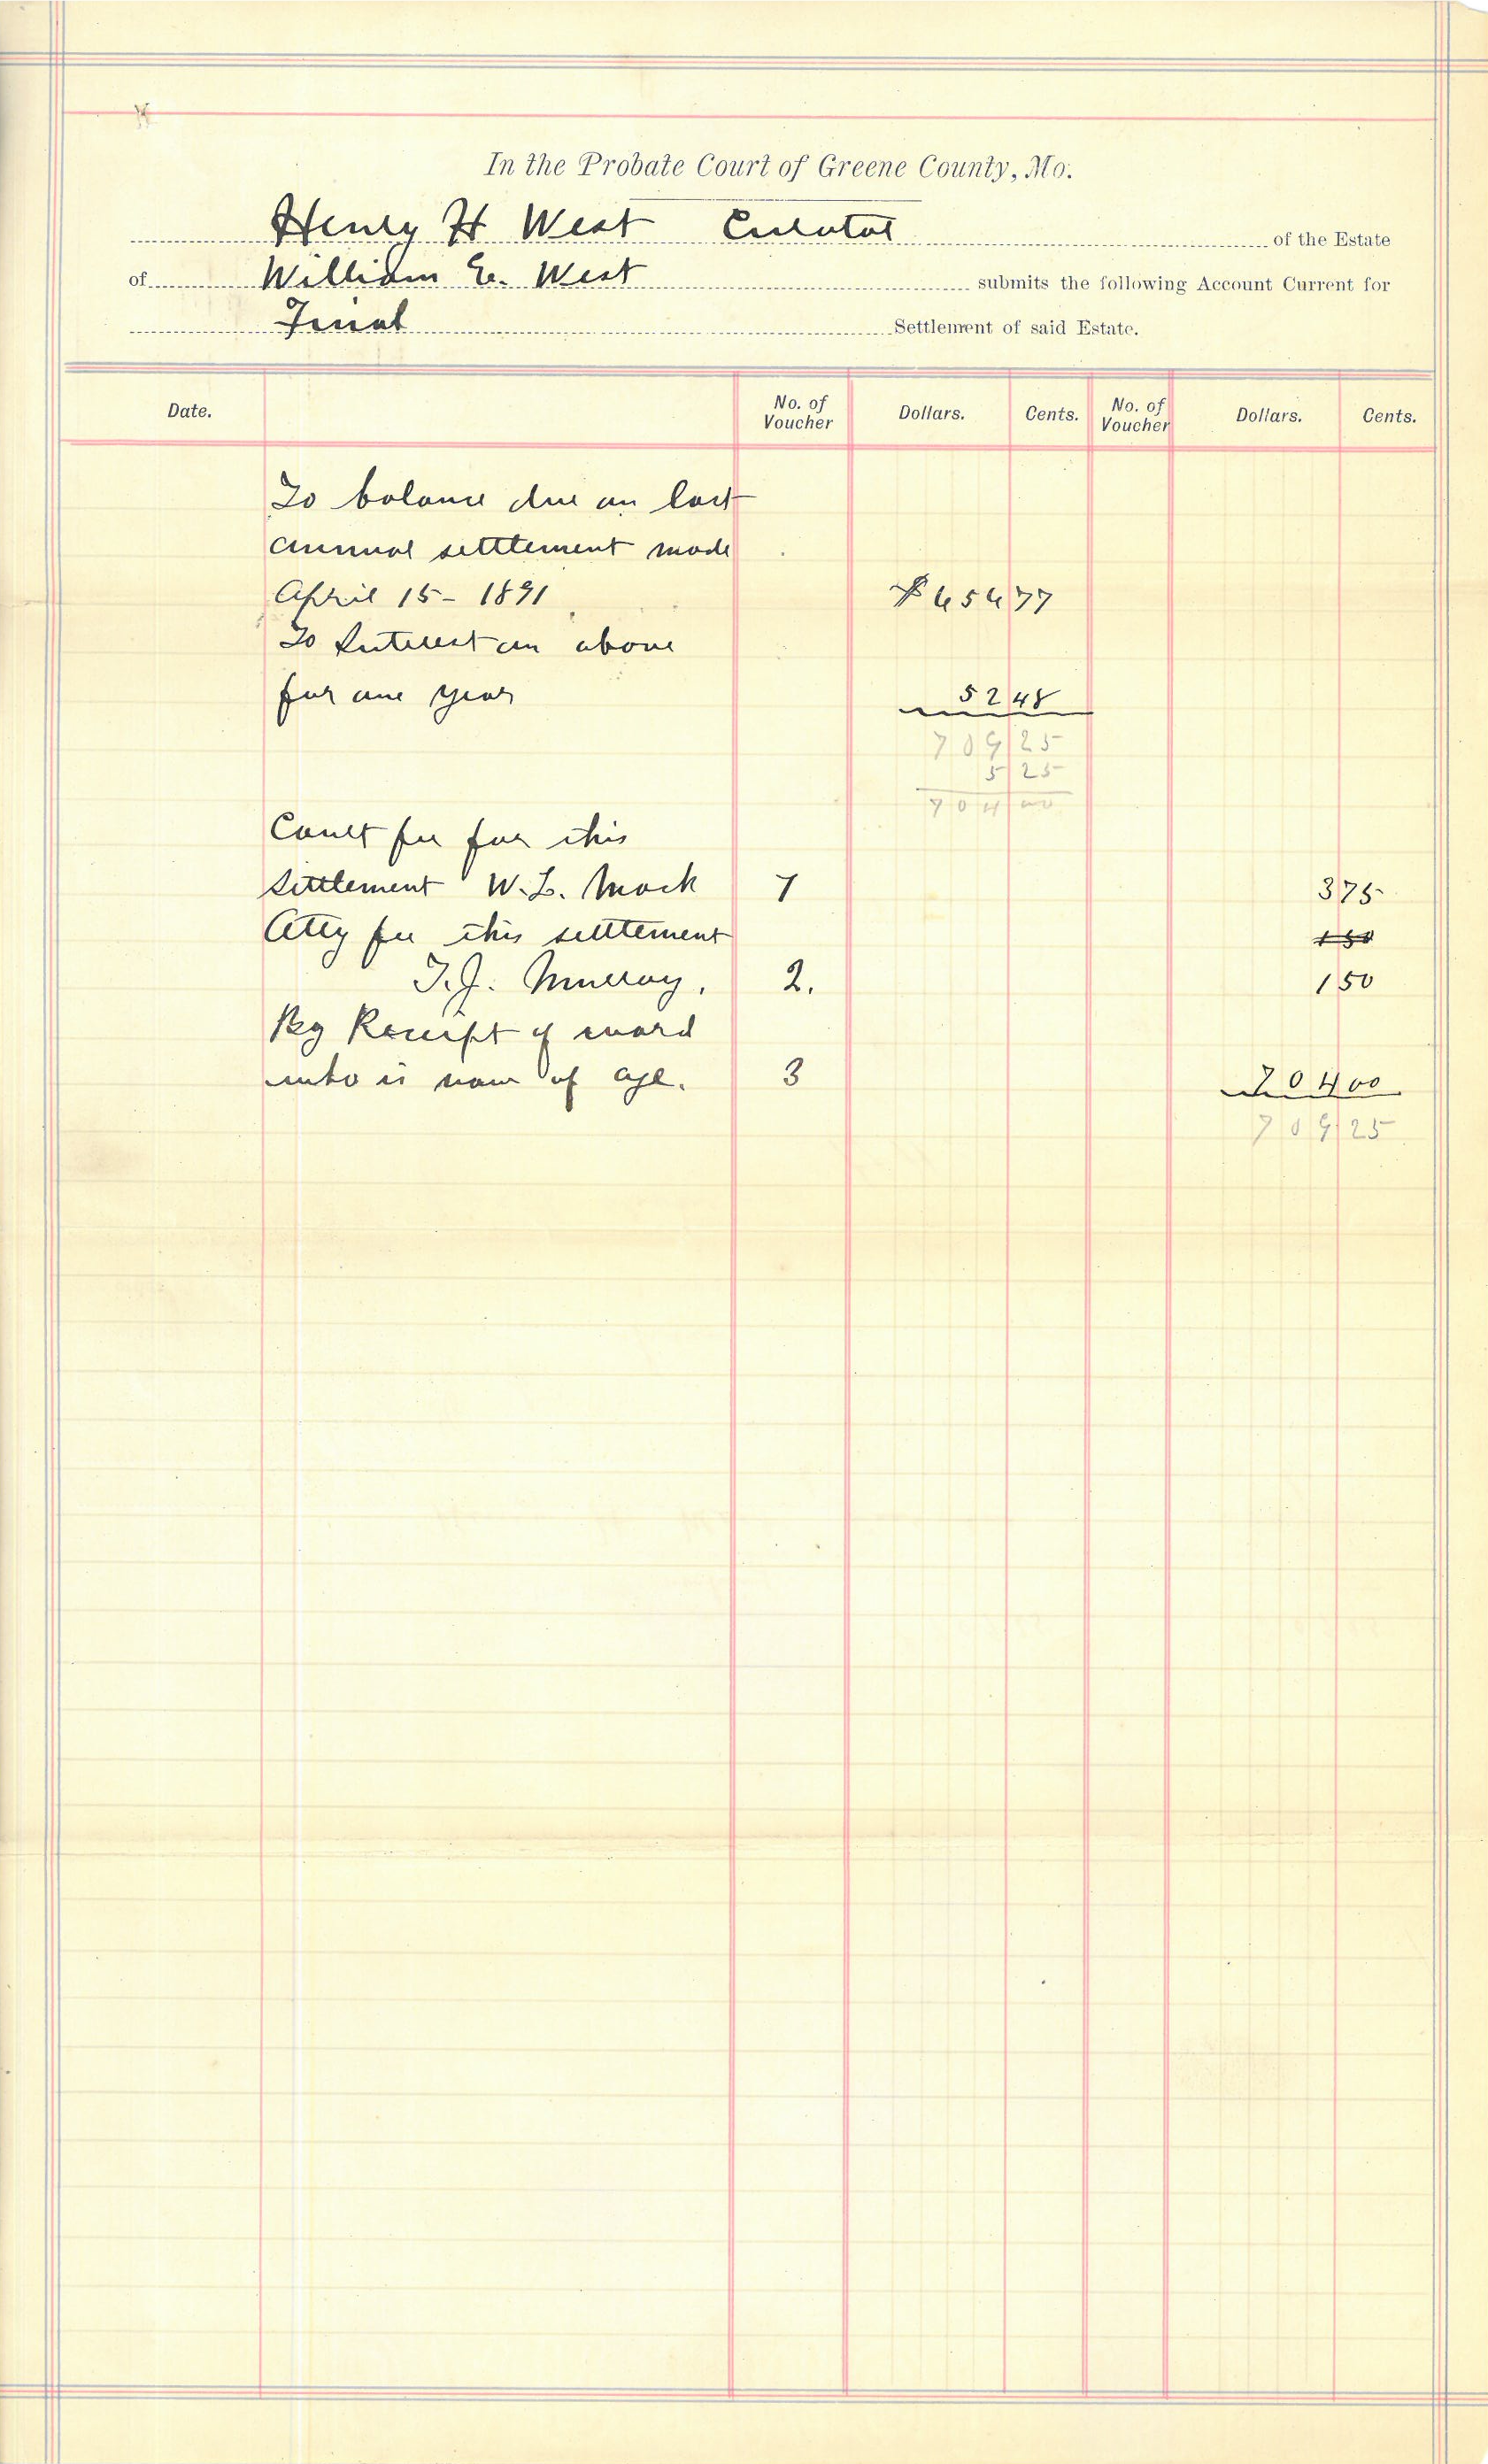 In the Probate Court of Greene County, Mo.
Henry H West Curator of the Estate
of William E. West submits the following Account Current for
Final Settlement of said Estate.
Date. No. of Voucher Dollars. Cents. No. of Voucher Dollars. Cents.
To balance due on last
annual settlement made
April 15 - 1891 $ 656 77
To Interest on above
for one year 52 48
709 25
5 25
704 00
Court fee for this
settlement W.L. Mack 1 3 75
Atty fee this settlement 1 50
T.J. Murray. 2. 1 50
By Receipt of ward
who is now of age. 3 704 00
709 25